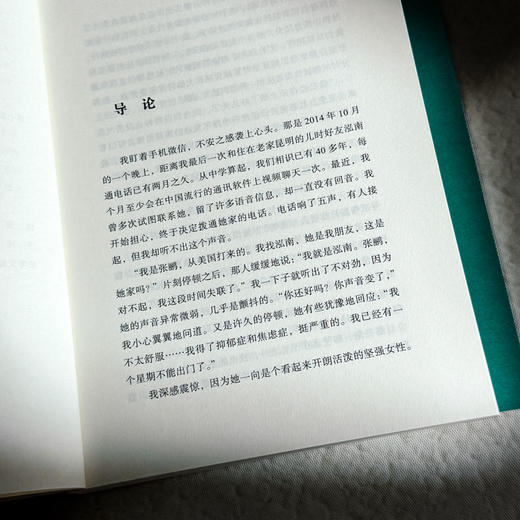 导 论
我盯着手机微信，不安之感袭上心头。那是 2014 年 10 月
的一个晚上，距离我最后一次和住在老家昆明的儿时好友泓南
通电话已有两月之久。从中学算起，我们相识已有 40 多年，每
个月至少会在中国流行的通讯软件上视频聊天一次。最近，我
曾多次试图联系她，留了许多语音信息，却一直没有回音。我
开始担心，终于决定拨通她家的电话。电话响了五声，有人接
起，但我却听不出这个声音。
“我是张鹂，从美国打来的。我找泓南，她是我朋友，这是
她家吗？”片刻停顿之后，那人缓缓地说：“我就是泓南。张鹂，
对不起，我这段时间失联了。”我一下子就听出了不对劲，因为
她的声音异常微弱，几乎是颤抖的。“你还好吗？你声音变了，”
我小心翼翼地问道。又是许久的停顿，她有些犹豫地回应：“我
不太舒服……我得了抑郁症和焦虑症，挺严重的。我已经有一
个星期不能出门了。”
我深感震惊，因为她一向是个看起来开朗活泼的坚强女性。